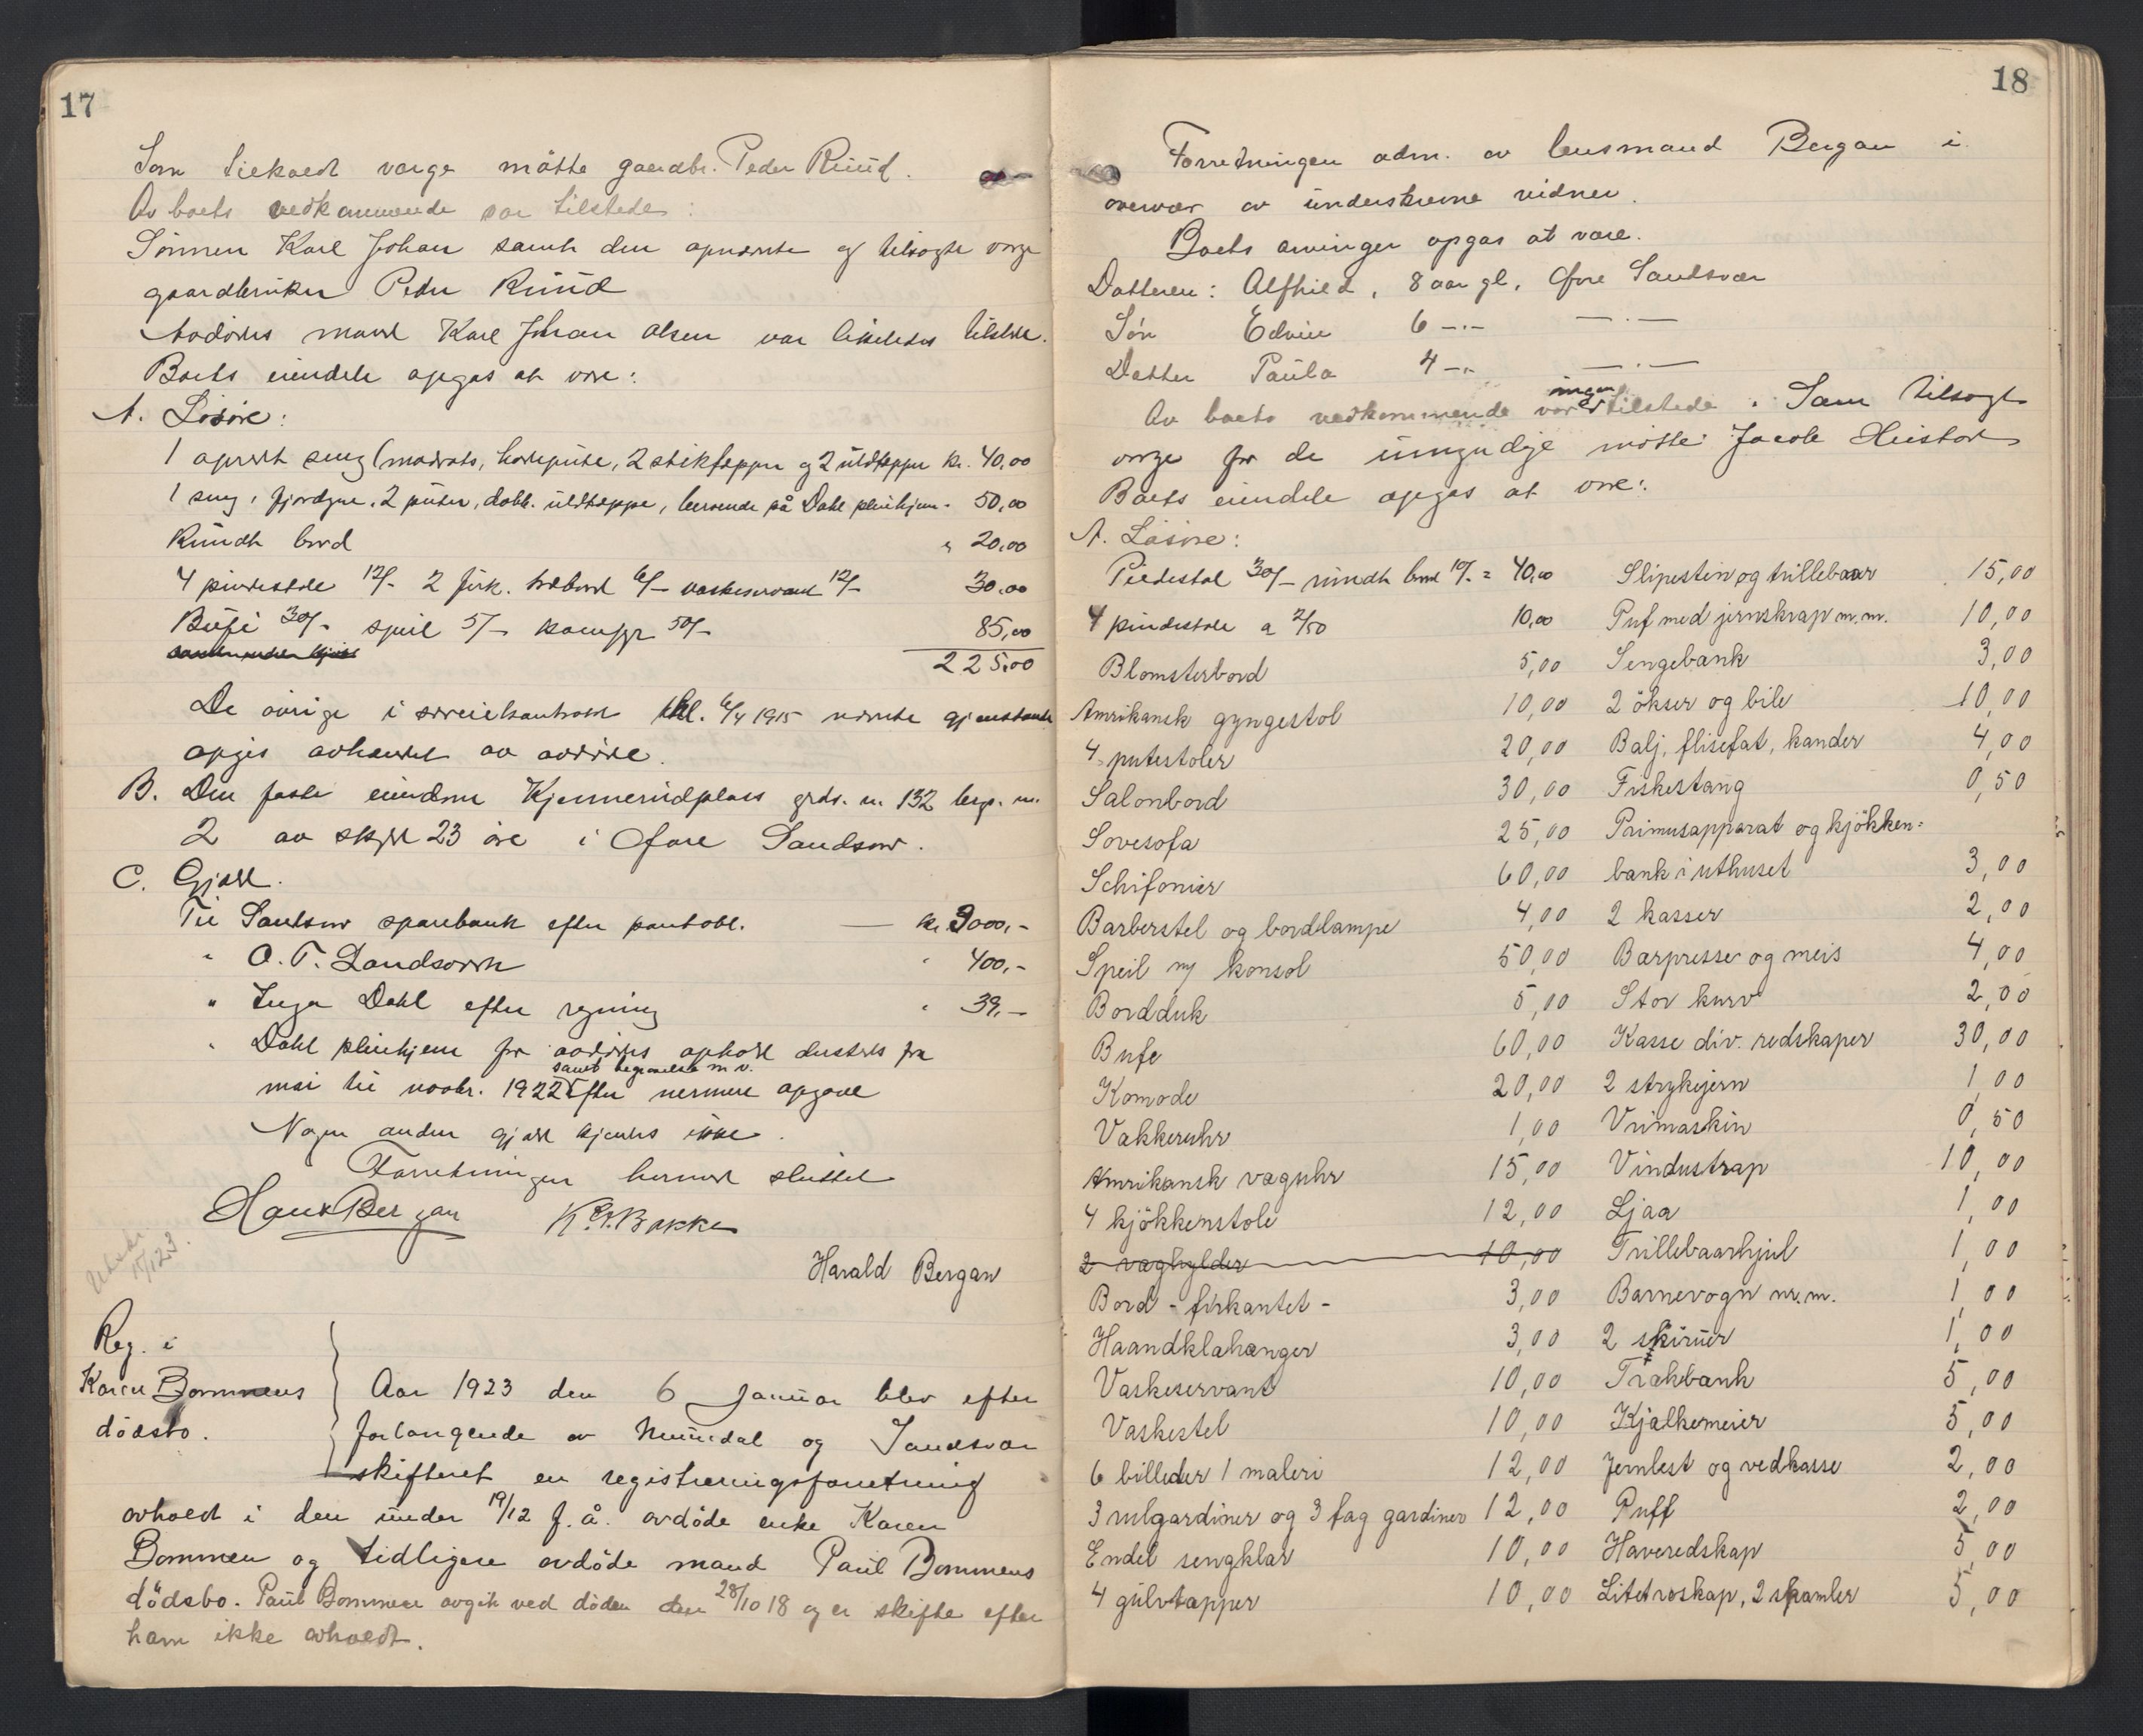 17
Som tilkaldt verge mötte gaardbr. Peder Ruud.
Av boets vedkommende var tilstede:
Sönnen Karl Johan samt den opnævnte og tilsagte verge
gaardbruker Peder Ruud
Avdödes mand Karl Johan Olsen var likeledes tilstede.
Boets eiendele opgas at være:
A. Lösöre:
1 opredt seng (madrats, hodepute, 2 stikteppe og 2 uldtepper kr. 40,00
1 seng, fjærdyne, 2 puter, dobb. uldteppe, beroende på Dahl pleiehjem - 50,00
Rundt bord " 20,00
4 pindestole 12/- 2 firk. træbord 6/- vaskeservant 12/- 30,00
Bufé 30/- speil 5/- komfyr 50/- 85,00
225,00
De övrige i særeiekontrakt tgl. 6/4 1915 nævnte gjenstande
opgis avhændet av avdöde.
B. Den faste eiendom Kjennerudplass grds. n. 132 brgs. nr.
2 av skyld 23 öre i Övre Sandsvær.
C. Gjæld.
Til Sandsvær sparebank efter pantobl. — kr. 3000,-
" O. T. Landsværk " 400,-
" Inga Dahl efter regning " 39,-
" Dahl pleiehjem for avdödes ophold dersteds fra
samt begravelse m. v.
mai til novbr. 1922 efter nærmere opgave
Nogen anden gjæld kjendes ikke.
Forretningen hermed sluttet
Hans Bergan K. O. Bakke
Harald Bergan
Utskr. 15/1 23.
Reg. i
Karen Bommens
dödsbo.
Aar 1923 den 6 januar blev efter
forlangende av Numedal og Sandsvær
skifteret en registreringsforretning
avholdt i den under 19/12 f. å. avdöde enke Karen
Bommen og tidligere avdöde mand Paul Bommens
dödsbo. Paul Bommen avgik ved döden den 28/10 18 og er skifte efter
ham ikke avholdt.
18
Forretningen adm. av lensmand Bergan i
overvær av underskrevne vidner.
Boets arvinger opgas at være.
Datteren: Alfhild, 8 aar gl., Övre Sandsvær
Sön Edvin 6 -"- —"—
Datter Paula 4 -"- —"—
ingen
Av boets vedkommende var tilstede. Som tilsagt
verge for de umyndige mötte Jacob Heistad
Boets eiendele opgas at være:
A. Lösöre:
Piedestal 30/- rundt bord 10/- = 40,00 Slipestein og trillebaar 15,00
4 pindestole a 2/50 10,00 Puf med jernskrap m.m. 10,00
Blomsterbord 5,00 Sengebank 3,00
Amrikansk gyngestol 10,00 2 ökser og bile 10,00
4 putestoler 20,00 Balj, flisefat, kander 4,00
Salonbord 30,00 Fiskestang 0,50
Sovesofa 25,00 Primusapparat og kjökken=
Schifonier 60,00 bank i uthuset 3,00
Barberstel og bordlampe 4,00 2 kasser 2,00
Speil m/ konsol 50,00 Bærpresse og meis 4,00
Bordduk 5,00 Stor kurv 2,00
Bufe 60,00 Kasse div. redskaper 30,00
Komode 20,00 2 strykejern 1,00
Vækkeruhr 1,00 Vrimaskin 0,50
Amrikansk væguhr 15,00 Vindustrap 10,00
4 kjökkenstole 12,00 Ljaa 1,00
2 væghylder 10,00 Trillebaarhjul 1,00
Bord - firkantet - 3,00 Barnevogn m.m. 1,00
Haandklæhænger 3,00 2 skiruer 1,00
Vaskeservant 10,00 Trækbænk 5,00
Vaskestel 10,00 Kjælkemeier 5,00
6 billeder 1 maleri 12,00 Jernlest og vedkasse 2,00
3 rulgardiner og 3 fag gardiner 12,00 Puff 2,00
Endel sengklær 10,00 Haveredskap 5,00
4 gulvtæpper 10,00 Litet roskap, 2 skamler 5,00